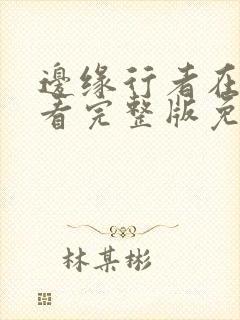 邊缘行者在
看完整版免
林某彬